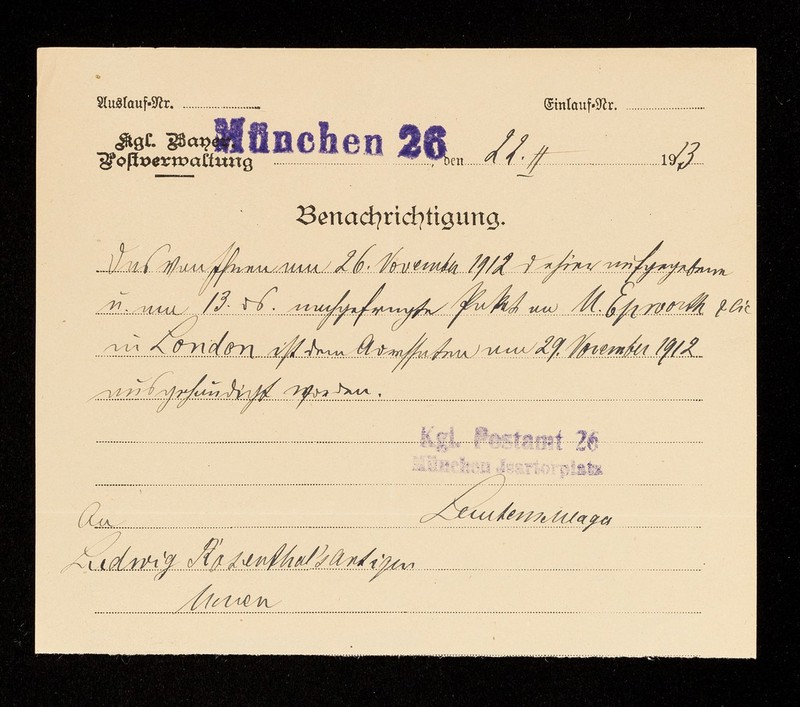 Auslauf-Nr. Einlauf-Nr.
Kgl. Bayer.
Postverwaltung München 26, den 22. II 1913
Benachrichtigung.
Das von Ihnen am 26. November 1912 dahier aufgegebene
u. am 13. ds. nachgefragte Paket an M. Epworth & Cie
in London ist dem Adressaten am 29. November 1912
ausgehändigt worden.
Kgl. Postamt 26
München Isartorplatz
An Leutenschlager
Ludwig Rosenthal's Antiqu